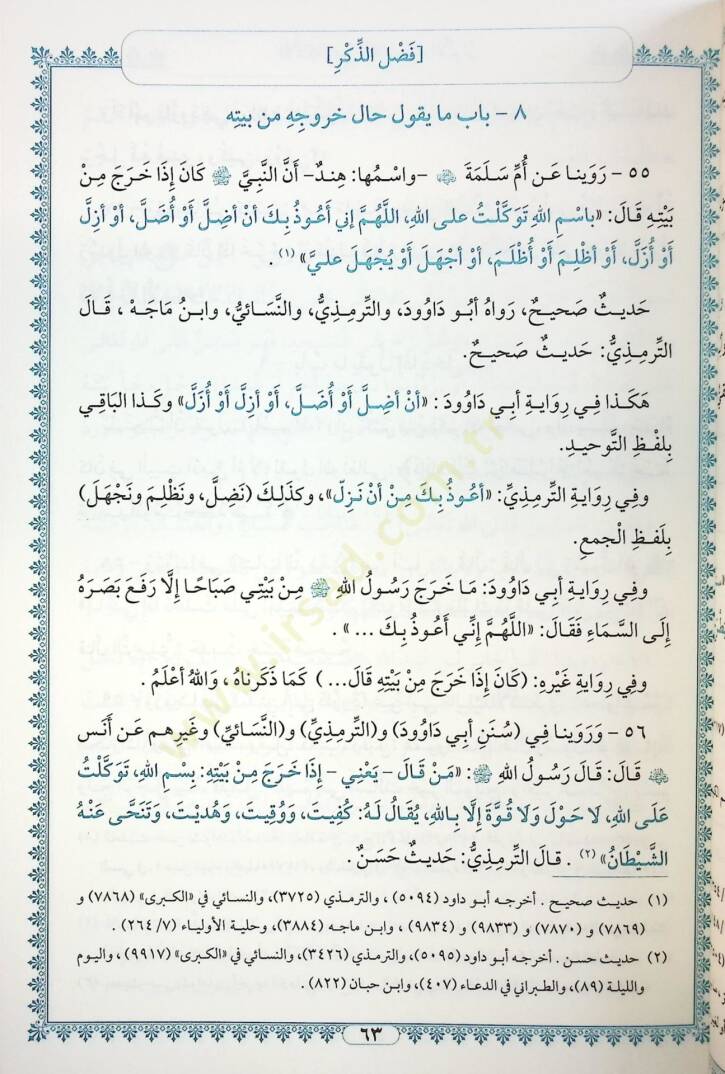 [فَضْل الذِّكْرِ]
٨ - باب ما يقول حال خروجِهِ من بيتِه
٥٥ - رَوَينا عَن أُمِّ سَلَمَةَ ﵂ -واسْمُها: هِندٌ- أَنَّ النَّبِيَّ ﷺ كَانَ إِذَا خَرَجَ مِنْ
بَيْتِهِ قَالَ: «باسْمِ اللهِ تَوَكَّلْتُ على اللهِ، اللَّهُمَّ إني أَعُوذُ بِكَ أنْ أضِلَّ أَوْ أُضَلَّ، أو أزِلَّ
أَوْ أُزَلَّ، أَوْ أظْلِمَ أَوْ أُظْلَمَ، أوْ أجْهَلَ أَوْ يُجْهَلَ عليَّ» (١) .
حَديثٌ صَحيحٌ، رَواهُ أبُو دَاوُودَ، والتِّرمِذِيُّ، والنَّسائيُّ، وابنُ مَاجَهْ ، قَالَ
التِّرمِذيُّ: حَديثٌ صَحيحٌ.
هَكَذا فِي رِوَايةِ أبي دَاوُودَ : «أنْ أضِلَّ أَوْ أُضَلَّ، أَوْ أزِلَّ أَوْ أُزَلَّ» وكَذا البَاقِي
بِلَفظِ التَّوحيدِ.
وفِي رِوايَةِ التِّرمِذيِّ: «أعُوذُ بِكَ مِنْ أنْ نَزِلّ»، وكذَلكَ (نَضِلَّ، ونَظْلِمَ ونَجْهَلَ)
بِلَفظِ الْجمعِ.
وفِي رِوايةِ أبي دَاوُودَ: مَا خَرجَ رَسُولُ اللهِ ﷺ مِنْ بَيْتِي صَباحًا إلَّا رَفَعَ بَصَرَهُ
إلَى السَّمَاءِ فَقَالَ: «اللَّهُمَّ إِنِّي أَعُوذُ بِكَ ...» .
وفِي رِوايةِ غَيْرِهِ: (كَانَ إِذَا خَرَجَ مِنْ بَيْتِهِ قَالَ... ) كَمَا ذَكَرناهُ ، واللهُ أعْلَمُ .
٥٦ - وَرَوَينا فِي (سُنَنِ أبي دَاوُودَ) و(التِّرمِذيِّ) و(النَّسائيِّ) وغَيرِهِم عَن أنَسٍ
﵁ قَالَ: قَالَ رَسُولُ اللهِ ﷺ: «مَنْ قَالَ - يَعْنِي - إذَا خَرَجَ مِنْ بَيْتِهِ: بِسْمِ اللهِ، تَوَكَّلْتُ
عَلَى اللهِ، لا حَوْلَ وَلا قُوَّةَ إلَّا باللهِ، يُقَالُ لَهُ: كُفِيتَ، وَوُقِيتَ، وَهُدِيْتَ، وَتَنَحَّى عَنْهُ
الشَّيْطَانُ» (٢) . قالَ التِّرمِذيُّ: حَديثٌ حَسَنٌ .
(١) حديث صحيح . أخرجه أبو داود (٥٠٩٤) ، والترمذي (٣٧٢٥)، والنسائي في «الكبرى» (٧٨٦٨) و
(٧٨٦٩) و (٧٨٧٠) و (٩٨٣٣) و (٩٨٣٤) ، وابن ماجه (٣٨٨٤)، وحلية الأولياء (٧/ ٢٦٤) .
(٢) حديث حسن . أخرجه أبو داود (٥٠٩٥)، والترمذي (٣٤٢٦)، والنسائي في «الكبرى» (٩٩١٧) ، واليوم
والليلة (٨٩)، والطبراني في الدعاء (٤٠٧)، وابن حبان (٨٢٢) .
٦٣
www.irsad.com.tr